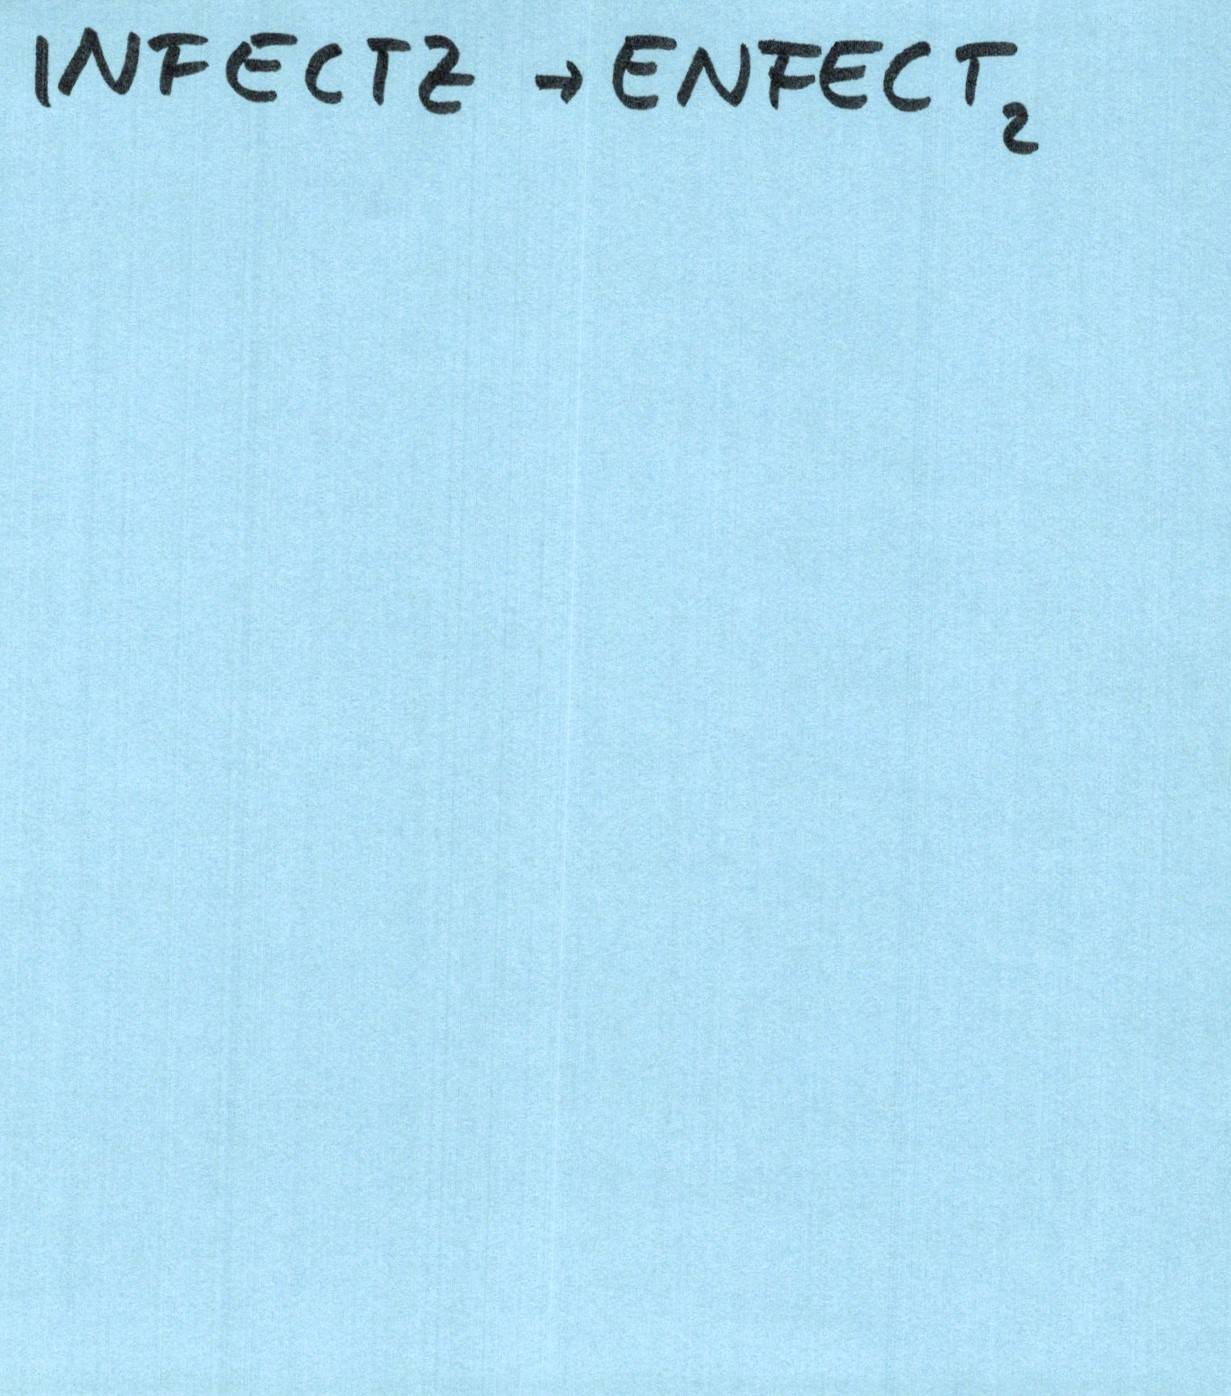 INFECT2 → ENFECT₂